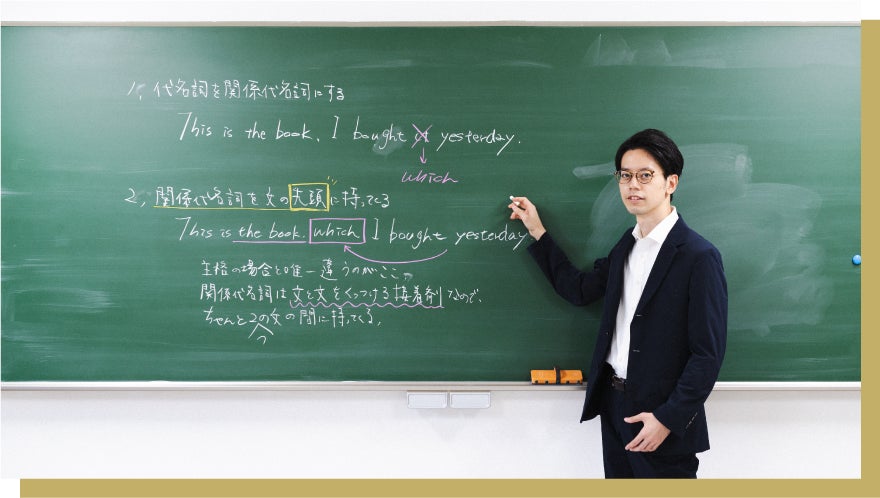 1, 代名詞を関係代名詞にする
This is the book. I bought it yesterday.
which
2, 関係代名詞を文の先頭に持ってくる
This is the book. which I bought yesterday
主格の場合と唯一違うのがここ。
関係代名詞は文と文をくっつける接着剤なので、
ちゃんと2つの文の間に持ってくる。